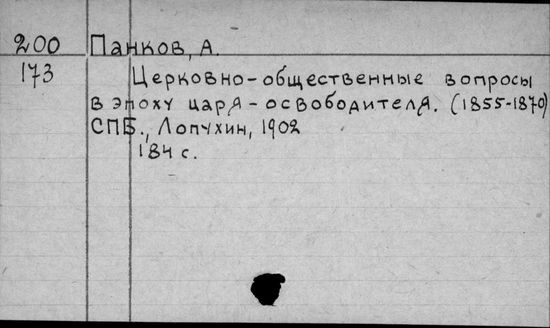 200 Панков, А.
173 Церковно-общественные вопросы
в эпоху царя-освободителя. (1855-1870)
СПБ., Лопухин, 1902
184 с.